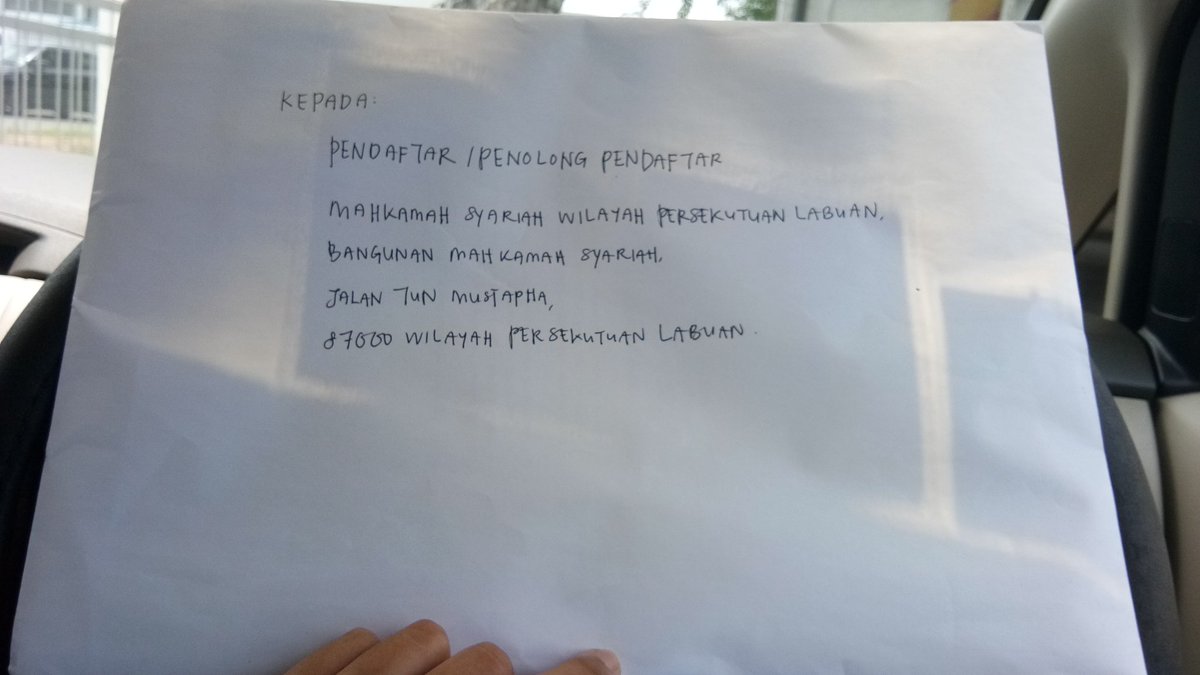 KEPADA:
PENDAFTAR / PENOLONG PENDAFTAR
MAHKAMAH SYARIAH WILAYAH PERSEKUTUAN LABUAN,
BANGUNAN MAHKAMAH SYARIAH,
JALAN TUN MUSTAPHA,
87000 WILAYAH PERSEKUTUAN LABUAN.